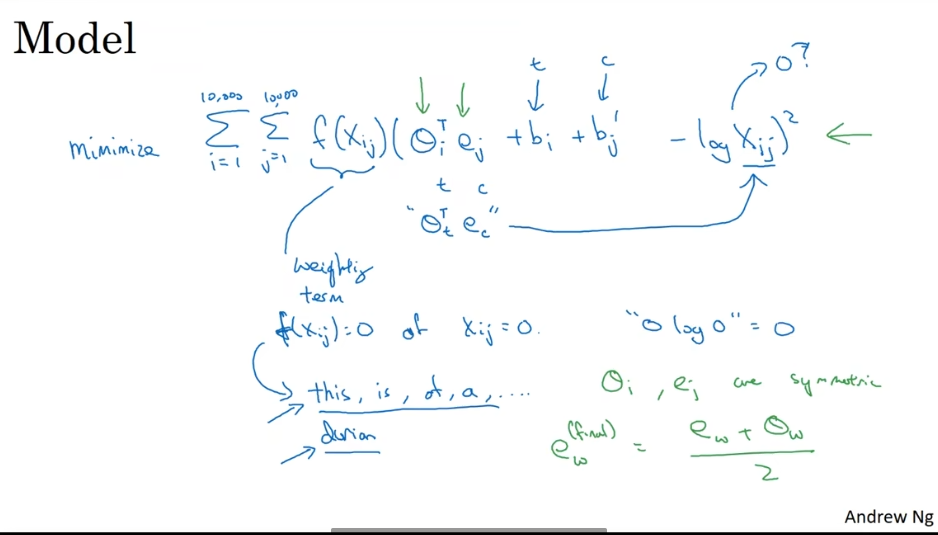 Model
minimize 10,000 Σ i=1 10,000 Σ j=1 f(Xij)(Θi^T ej + bi + bj' - log Xij)^2
t c
0?
t c
"Θt^T ec"
weighting
term
f(Xij)=0 at Xij=0. "0 log 0" = 0
this, is, of, a, ....
durian
Θi, ej are symmetric
ew^(final) = (ew + Θw) / 2
Andrew Ng